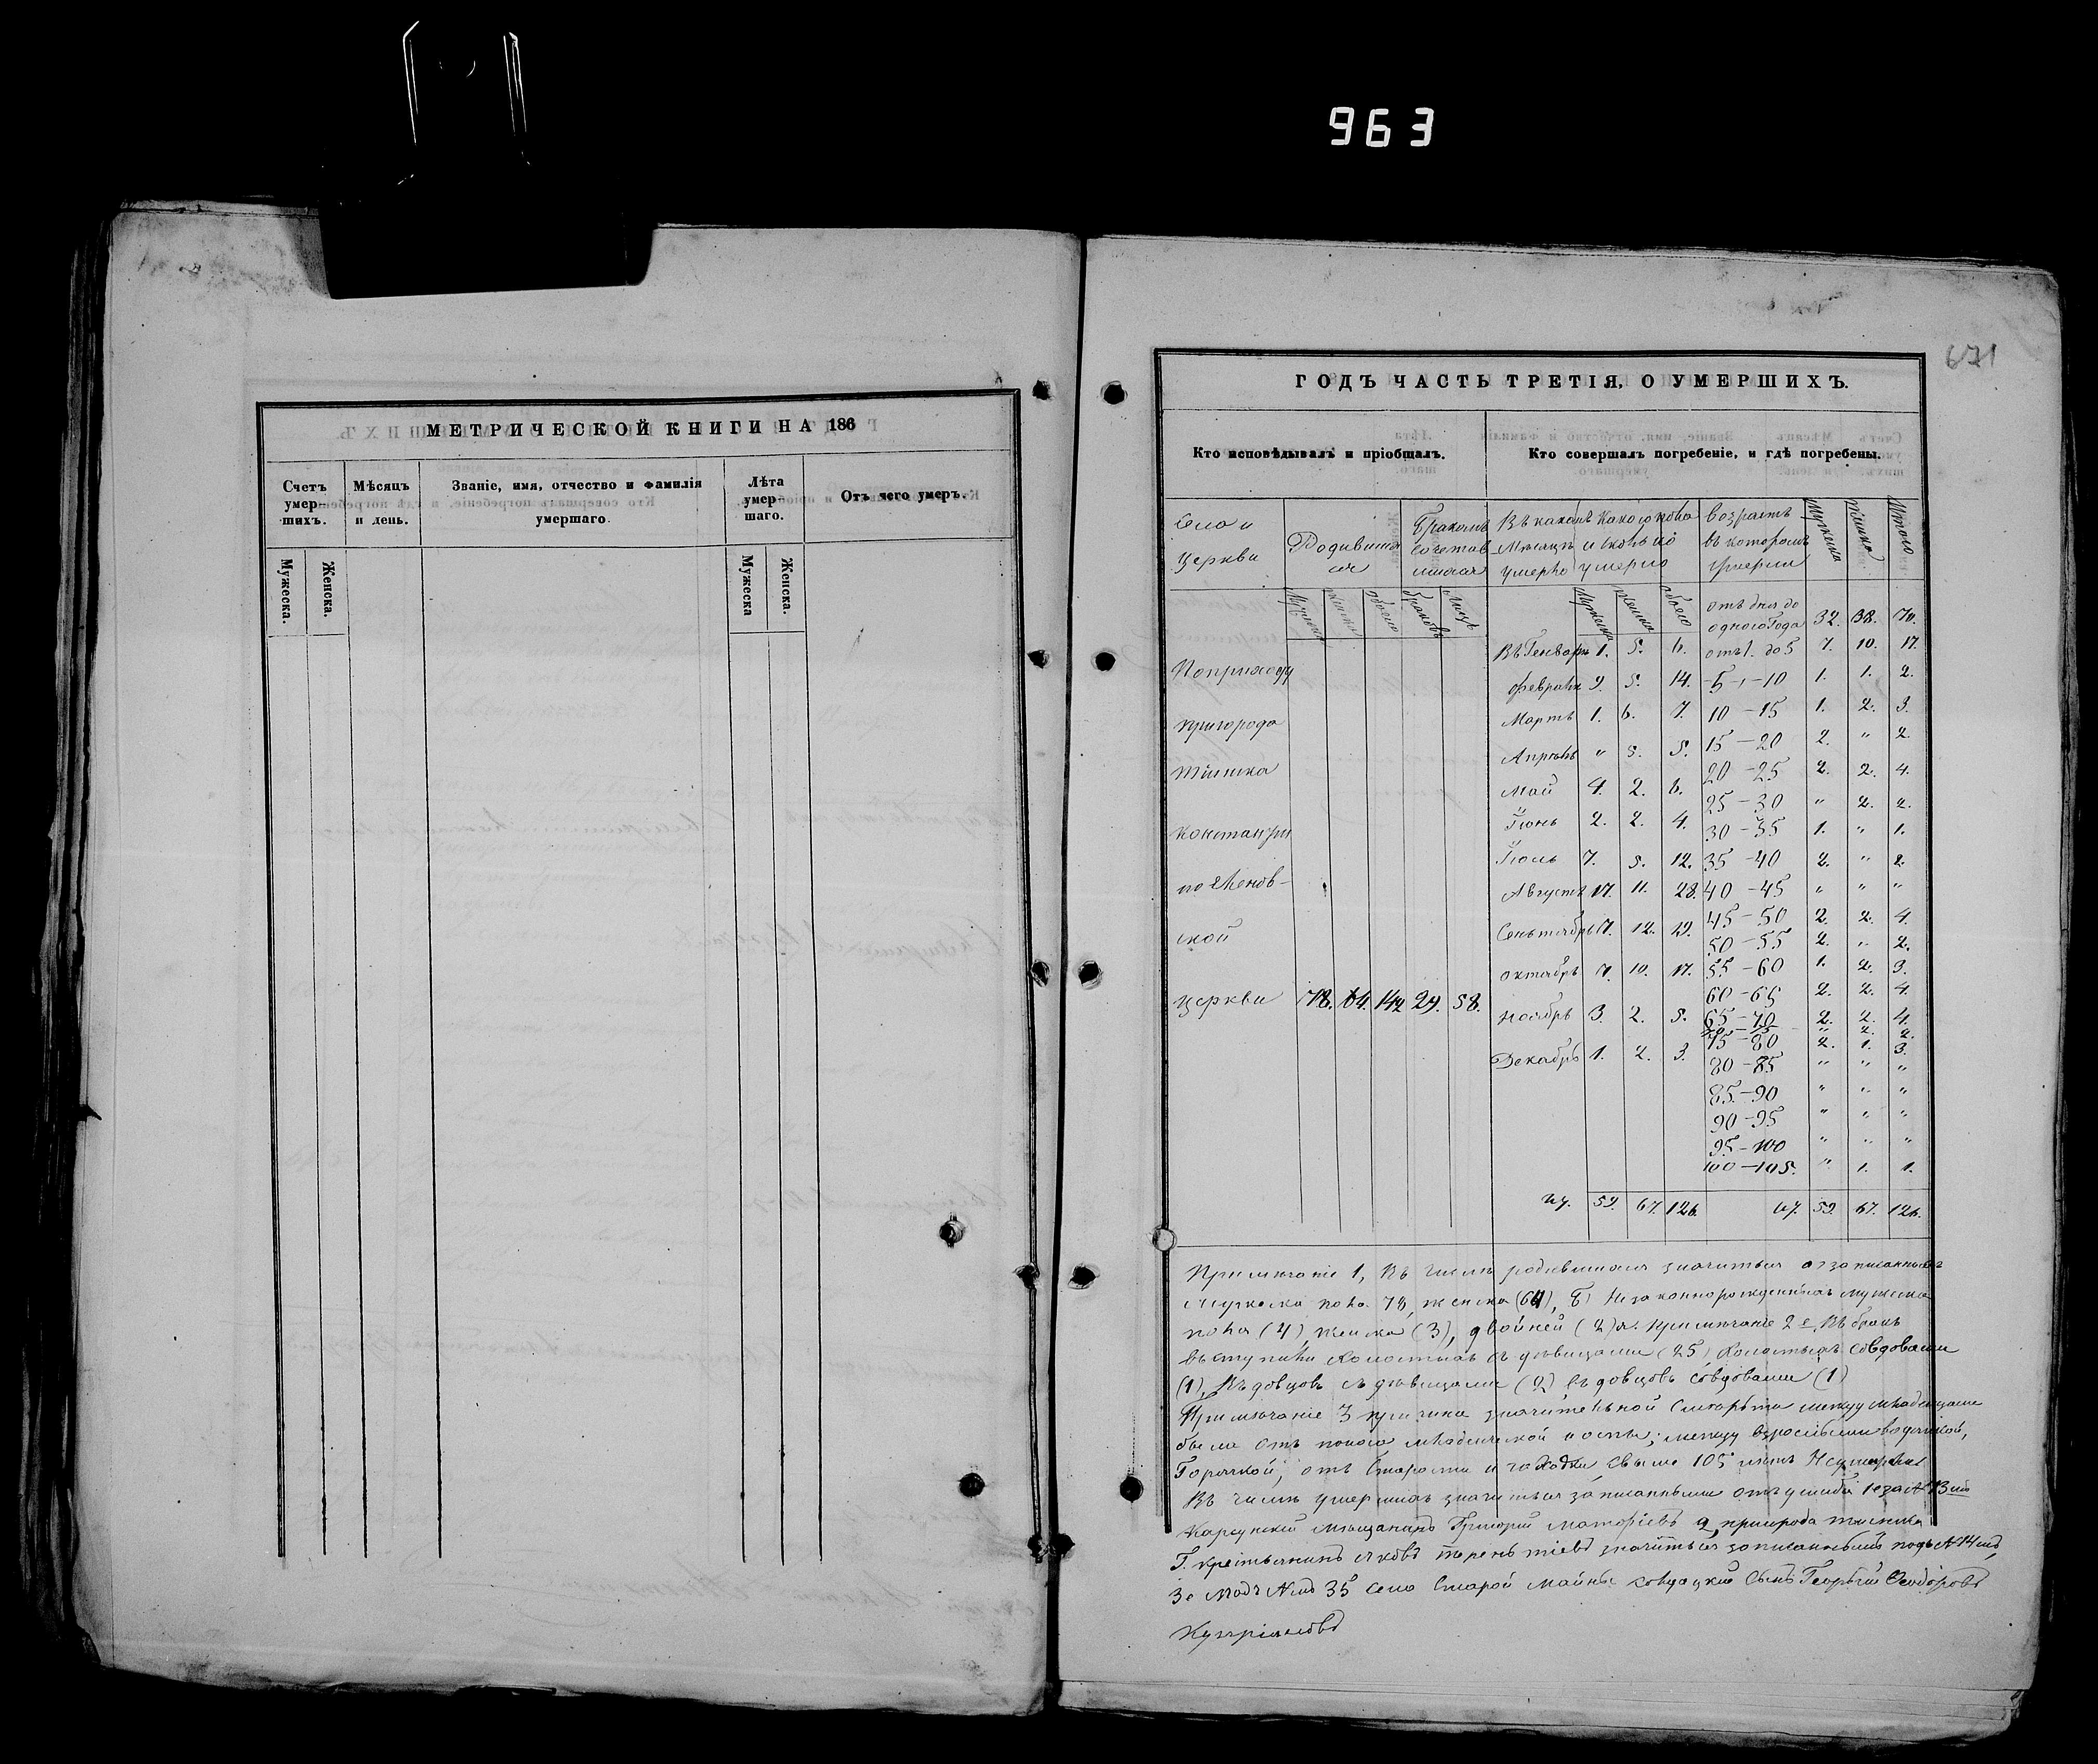 963
671
МЕТРИЧЕСКОЙ КНИГИ НА 186
Счетъ умер-шихъ.
Мѣсяцъ и день.
Званіе, имя, отчество и фамилія умершаго.
Лѣта умер-шаго.
Отъ чего умеръ.
Мужеска.
Женска.
Мужеска
Женска.
ГОДЪ ЧАСТЬ ТРЕТІЯ, О УМЕРШИХЪ.
Кто исповѣдывалъ и пріобщалъ.
Кто совершалъ погребеніе, и гдѣ погребены.
Село и Церкви
Родившихся
Бракомъ сочетавшихся
Въ какомъ Мѣсяцѣ умерло
какого пола и сколько умерло
возрастъ въ которомъ умерли
Мужеска
Женска
Итого
Мужеска
Женска
обоего
браковъ
лицъ
Мужеска
Женска
обоего
отъ дня до одного года 32. 38. 70.
Въ Генварѣ 1. 5. 6. отъ 1. до 5 7. 10. 17.
По приходу
Февраль 9. 5. 14. 5 - 10 1. 1. 2.
Мартъ 1. 6. 7. 10 - 15 1. 2. 3.
пригорода
Апрѣль " 5. 5. 15 - 20 2. " 2.
Тіинска
20 - 25 2. 2. 4.
Май 4. 2. 6. 25 - 30 " 2. 2.
Іюнь 2. 2. 4. 30 - 35 1. " 1.
Константи
Іюль 7. 5. 12. 35 - 40 2. " 2.
Августъ 17. 11. 28. 40 - 45 " " "
но Еленов-
45 - 50 2. 2. 4.
Сентябрь 7. 12. 19. 50 - 55 2. " 2.
ской
октябрь 7. 10. 17. 55 - 60 1. 2. 3.
60 - 65 2. 2. 4.
Церкви 78. 64. 142 29. 58.
Ноябрь 3. 2. 5. 65 - 70 2. 2. 4.
70 - 75 " 2. 2.
75 - 80 2. 1. 3.
Декабрь 1. 2. 3. 80 - 85 " " "
85 - 90 " " "
90 - 95 " " "
95 - 100 " " "
100 - 105. " 1. 1.
Ит. 59. 67. 126. Ит. 59. 67. 126.
Примѣчаніе 1, Въ числѣ родившихся значится а) записанныхъ
Мужеска пола 78, женска (64), б) Незаконнорожденныхъ мужеска
пола (4) женска (3), двойней (2) Примѣчаніе 2е Въ бракъ
вступили холостыхъ съ дѣвицами (25) холостыхъ со вдовами
(1), Вдовцовъ съ дѣвицами (2) вдовцовъ со вдовами (1)
Примѣчаніе 3 причина значительной смерти между младенцами
была отъ младенческой оспы; между взрослыми водяной,
Горячкой, отъ старости и свыше 105 лѣтъ Не умерших
Въ числѣ умершихъ значится записанными отъ
Карсунскій мѣщанинъ Григорій 2 пригорода Тіинска
Г. крестьянинъ Яковъ Терентіевъ значится записаннымъ подъ №
3е подъ № 35 села Старой Майны сынъ Георгій Ѳеодоровъ